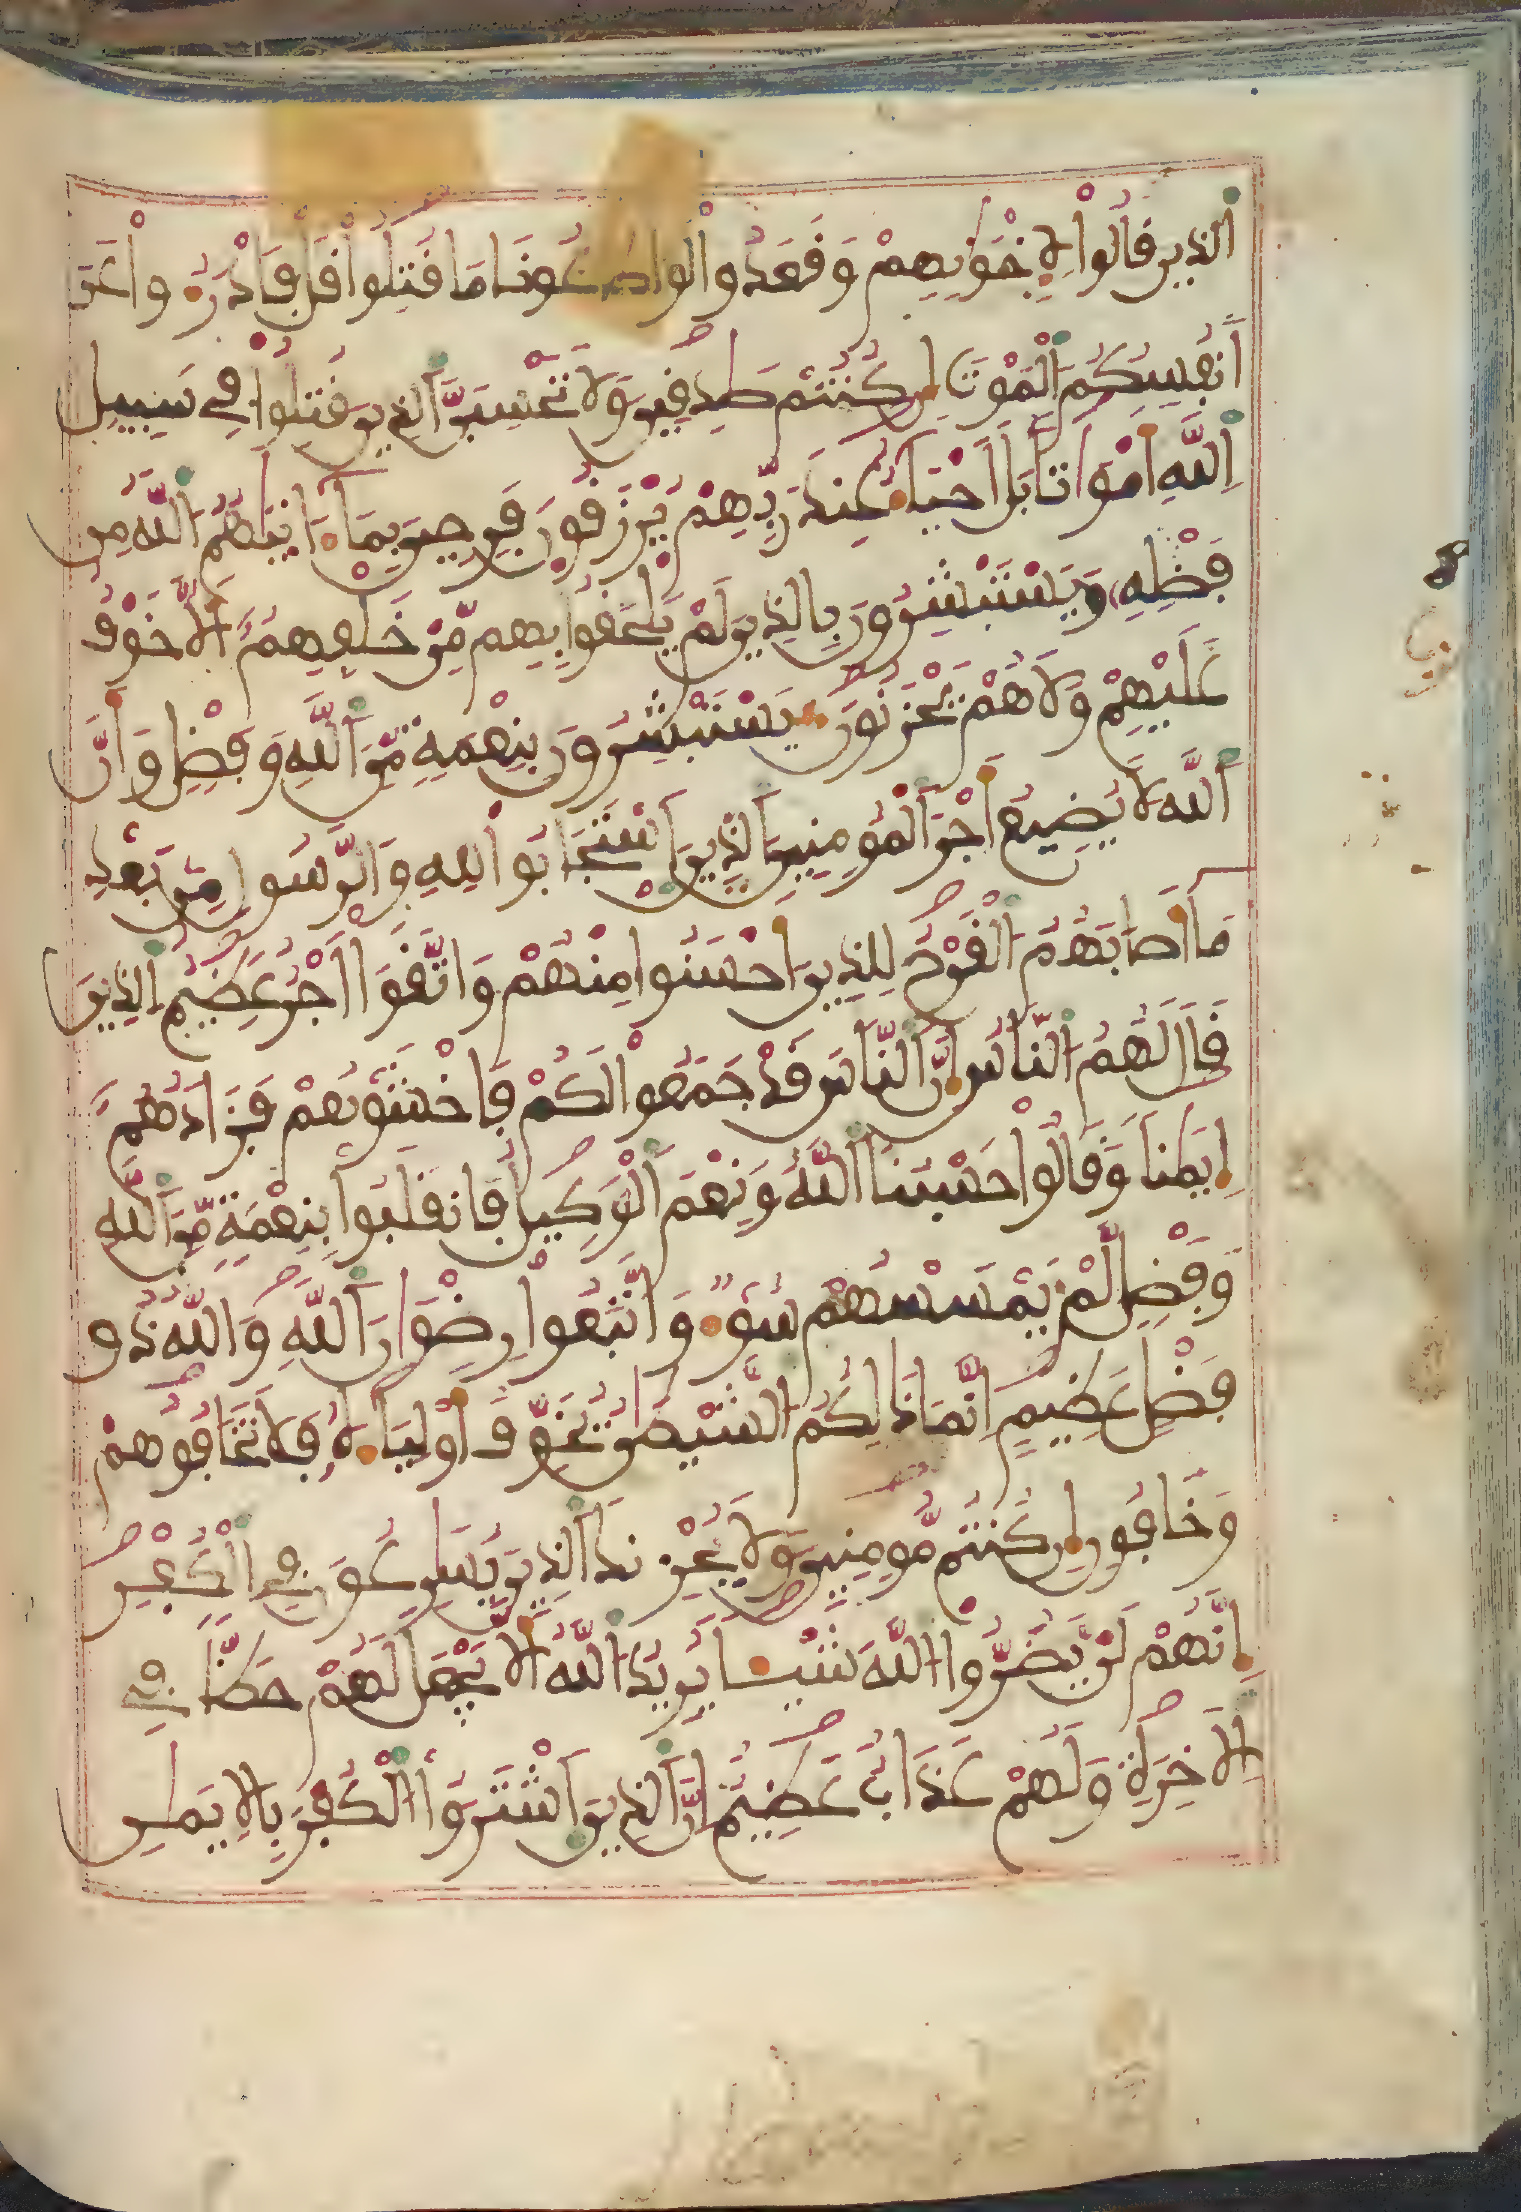 الذين قالوا لإخوٰنهم وقعدوا لو اطاعونا ما قتلوا قل فادرءوا عن
انفسكم الموت ان كنتم صدقين ولا تحسبن الذين قتلوا في سبيل
الله امواتا بل احياء عند ربهم يرزقون فرحين بما ءاتيهم الله من
فضله ويستبشرون بالذين لم يلحقوا بهم من خلفهم الا خوف
عليهم ولا هم يحزنون يستبشرون بنعمة من الله وفضل وان
الله لا يضيع اجر المومنين الذين استجابوا لله والرسول من بعد
ما اصابهم القرح للذين احسنوا منهم واتقوا اجر عظيم الذين
قال لهم الناس ان الناس قد جمعوا لكم فاخشوهم فزادهم
ايمنا وقالوا حسبنا الله ونعم الوكيل فانقلبوا بنعمة من الله
وفضل لم يمسسهم سوء واتبعوا رضوان الله والله ذو
فضل عظيم انما ذالكم الشيطن يخوف اولياءه فلا تخافوهم
وخافون ان كنتم مومنين ولا يحزنك الذين يسارعون في الكفر
انهم لن يضروا الله شيئا يريد الله الا يجعل لهم حظا في
الاخرة ولهم عذاب عظيم ان الذين اشتروا الكفر بالايمن